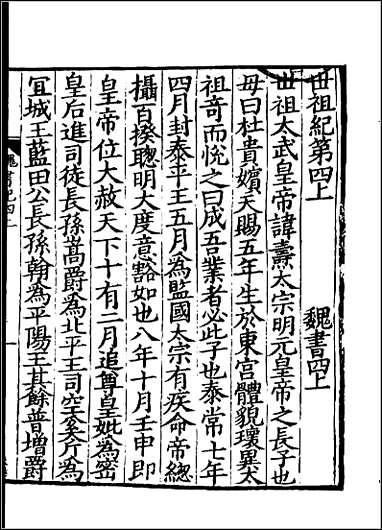 世祖紀第四上　魏書四上
世祖太武皇帝諱燾太宗明元皇帝之長子也
母曰杜貴嬪天賜五年生於東宮體貌瓌異太
祖奇而悅之曰成吾業者必此子也泰常七年
四月封泰平王五月為監國太宗有疾命帝緫
攝百揆聰明大度意豁如也八年十月壬申即
皇帝位大赦天下十有二月追尊皇妣為密
皇后進司徒長孫嵩爵為北平王司空奚斤為
冝城王藍田公長孫翰為平陽王其餘普增爵